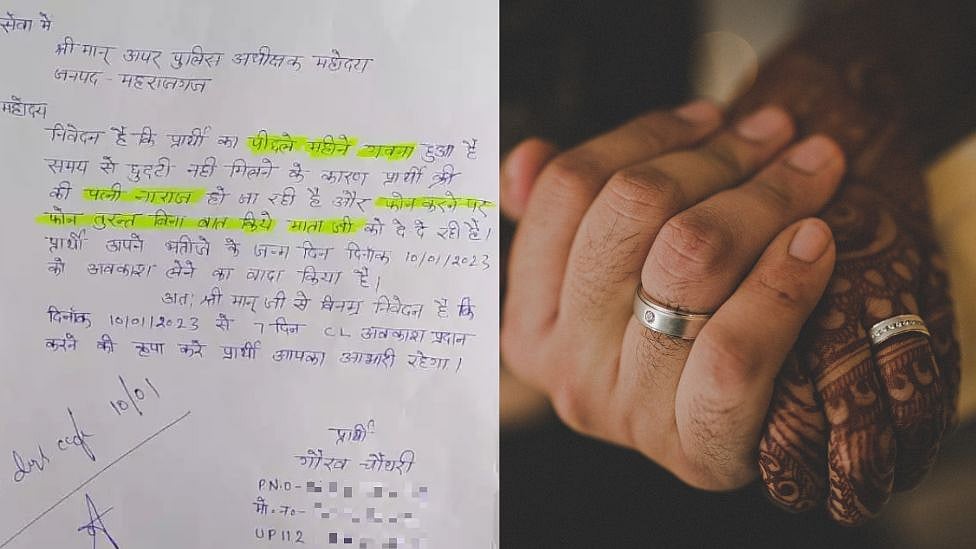 सेवा मे
श्री मान् अपर पुलिस अधीक्षक महोदय
जनपद - महराजगंज
महोदय
निवेदन है कि प्रार्थी का पीछले महीने गवना हुआ है
समय से छुट्टी नही मिलने के कारण प्रार्थी श्री
की पत्नी नाराज हो जा रही है और फोन करने पर
फोन तुरन्त बिना बात किये माता जी को दे दे रही है।
प्रार्थी अपने भतीजे के जन्म दिन दिनांक 10/01/2023
को अवकाश लेने का वादा किया है।
अतः श्री मान् जी से विनम्र निवेदन है कि
दिनांक 10/01/2023 से 7 दिन CL अवकाश प्रदान
करने की कृपा करे प्रार्थी आपका आभारी रहेगा।
10/01
प्रार्थी
गौरव चौधरी
P.N.O -
मो. न. -
UP112